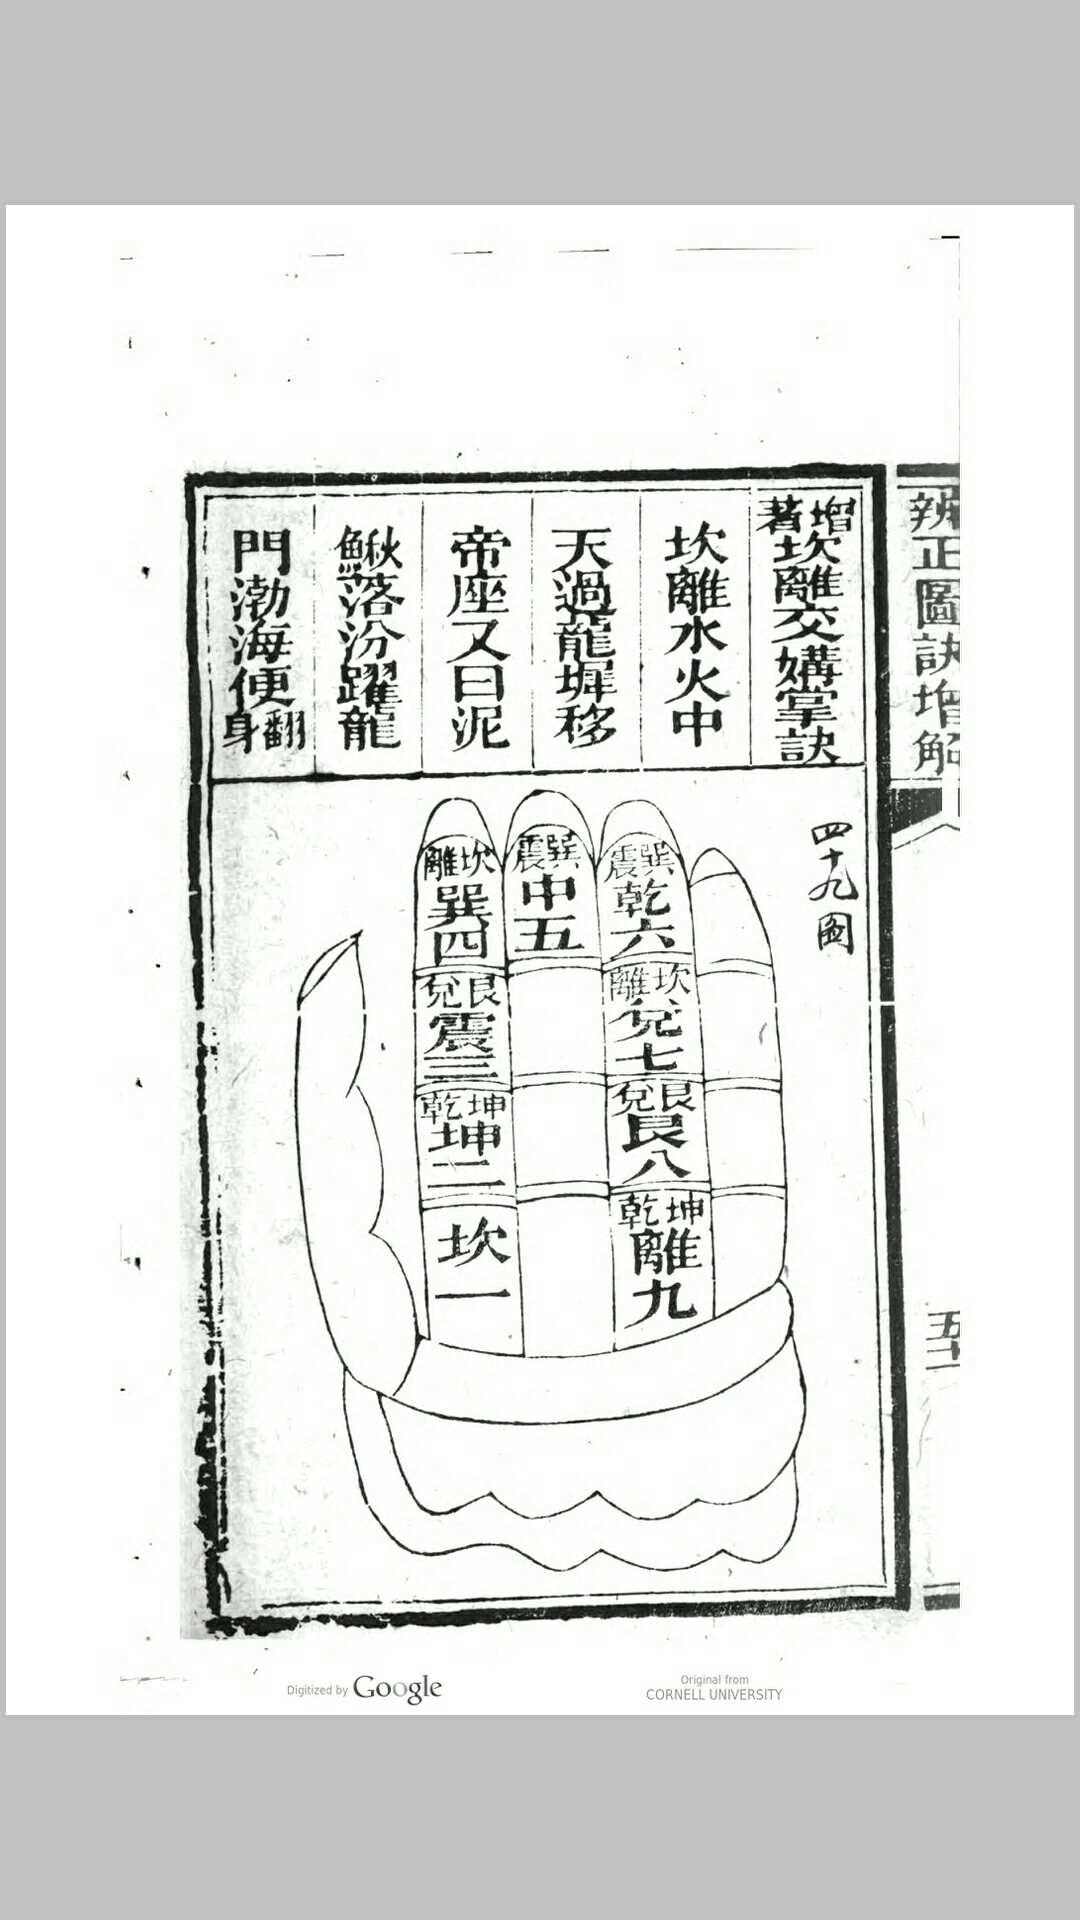 辨正圖訣增解
五十一
增著坎離交媾掌訣
坎離水火中
天過龍墀移
帝座又曰泥
鰍落汾躍龍
門渤海便翻身
四十九圖
坎離
巽四
艮兌
震三
坤乾
坤二
坎一
巽震
中五
巽震
乾六
坎離
兌七
艮兌
艮八
坤乾
離九
Digitized by Google
Original from
CORNELL UNIVERSITY